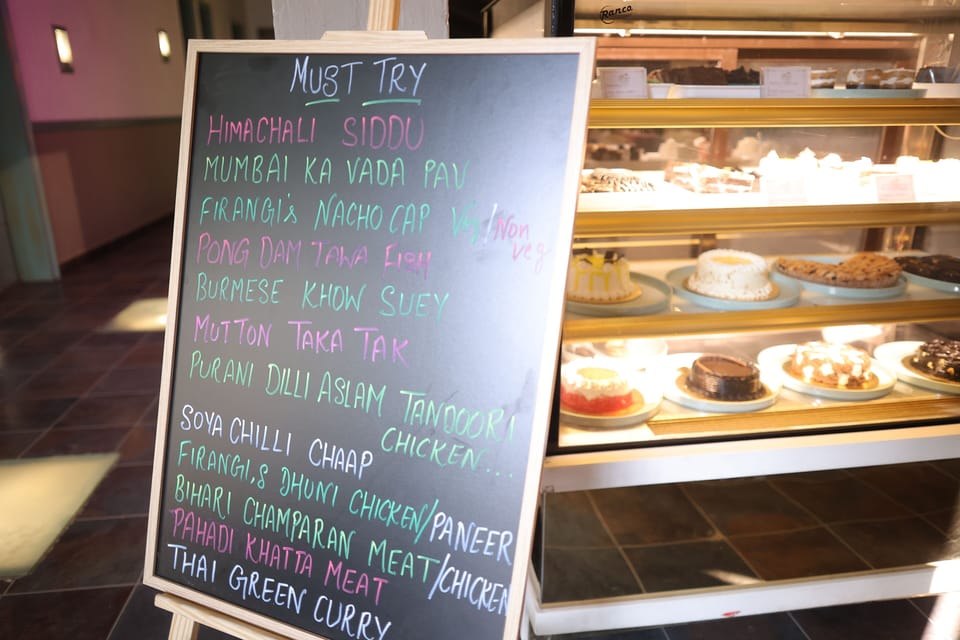 Ranco
MUST TRY
HIMACHALI SIDDU
MUMBAI KA VADA PAV
FIRANGI's NACHO CAP Veg/Non veg
PONG DAM TAWA FISH
BURMESE KHOW SUEY
MUTTON TAKA TAK
PURANI DILLI ASLAM TANDOORI
CHICKEN....
SOYA CHILLI CHAAP
FIRANGI,s DHUNI CHICKEN/PANEER
BIHARI CHAMPARAN MEAT/CHICKEN
PAHADI KHATTA MEAT
THAI GREEN CURRY